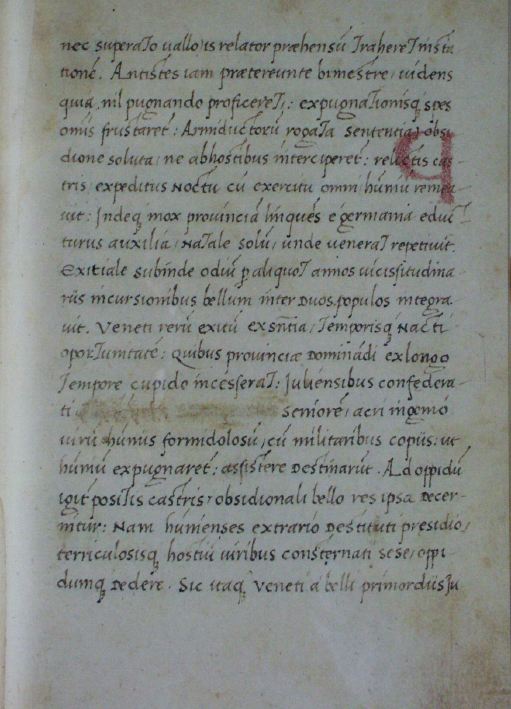 nec superato uallo, is relator præhensū traheret in sta
tionē. Antistes iam prætereunte bimestre, uidens
quia nil pugnando proficeret, : expugnationisq; spes
om̄is frustraret : Armiductorū rogata sententia, obsi
dione soluta, ne ab hostibus interciperet : relictis cas-
tris, expeditus noctu cū exercitu omni, humū remea-
uit : Indeq; mox prouinciā linquēs e germania educ
turus auxilia, natale solū, unde venerat repetiuit.
Exitiale subinde odiū p aliquot annos uicissitudina-
riis incursionibus bellum inter duos populos integra
uit. Veneti rerū exitū ex sn̄tia, temporisq; nacti
oportunitatē : Quibus prouinciæ dominādi ex longo
tempore cupido incesserat : Juliensibus confedera-
ti seniorē, acri ingenio
uirū humis formidolosū, cū militaribus copiis : ut
humū expugnaret : assistere destinarūt. Ad oppidū
igit positis castris, obsidionali bello res ipsa decer-
nitur : Nam humenses extrario destituti presidio,
terriculosisq; hostiū uiribus consternati sese, oppi-
dumq; dedere. Sic itaq; Veneti a belli primordiis Ju